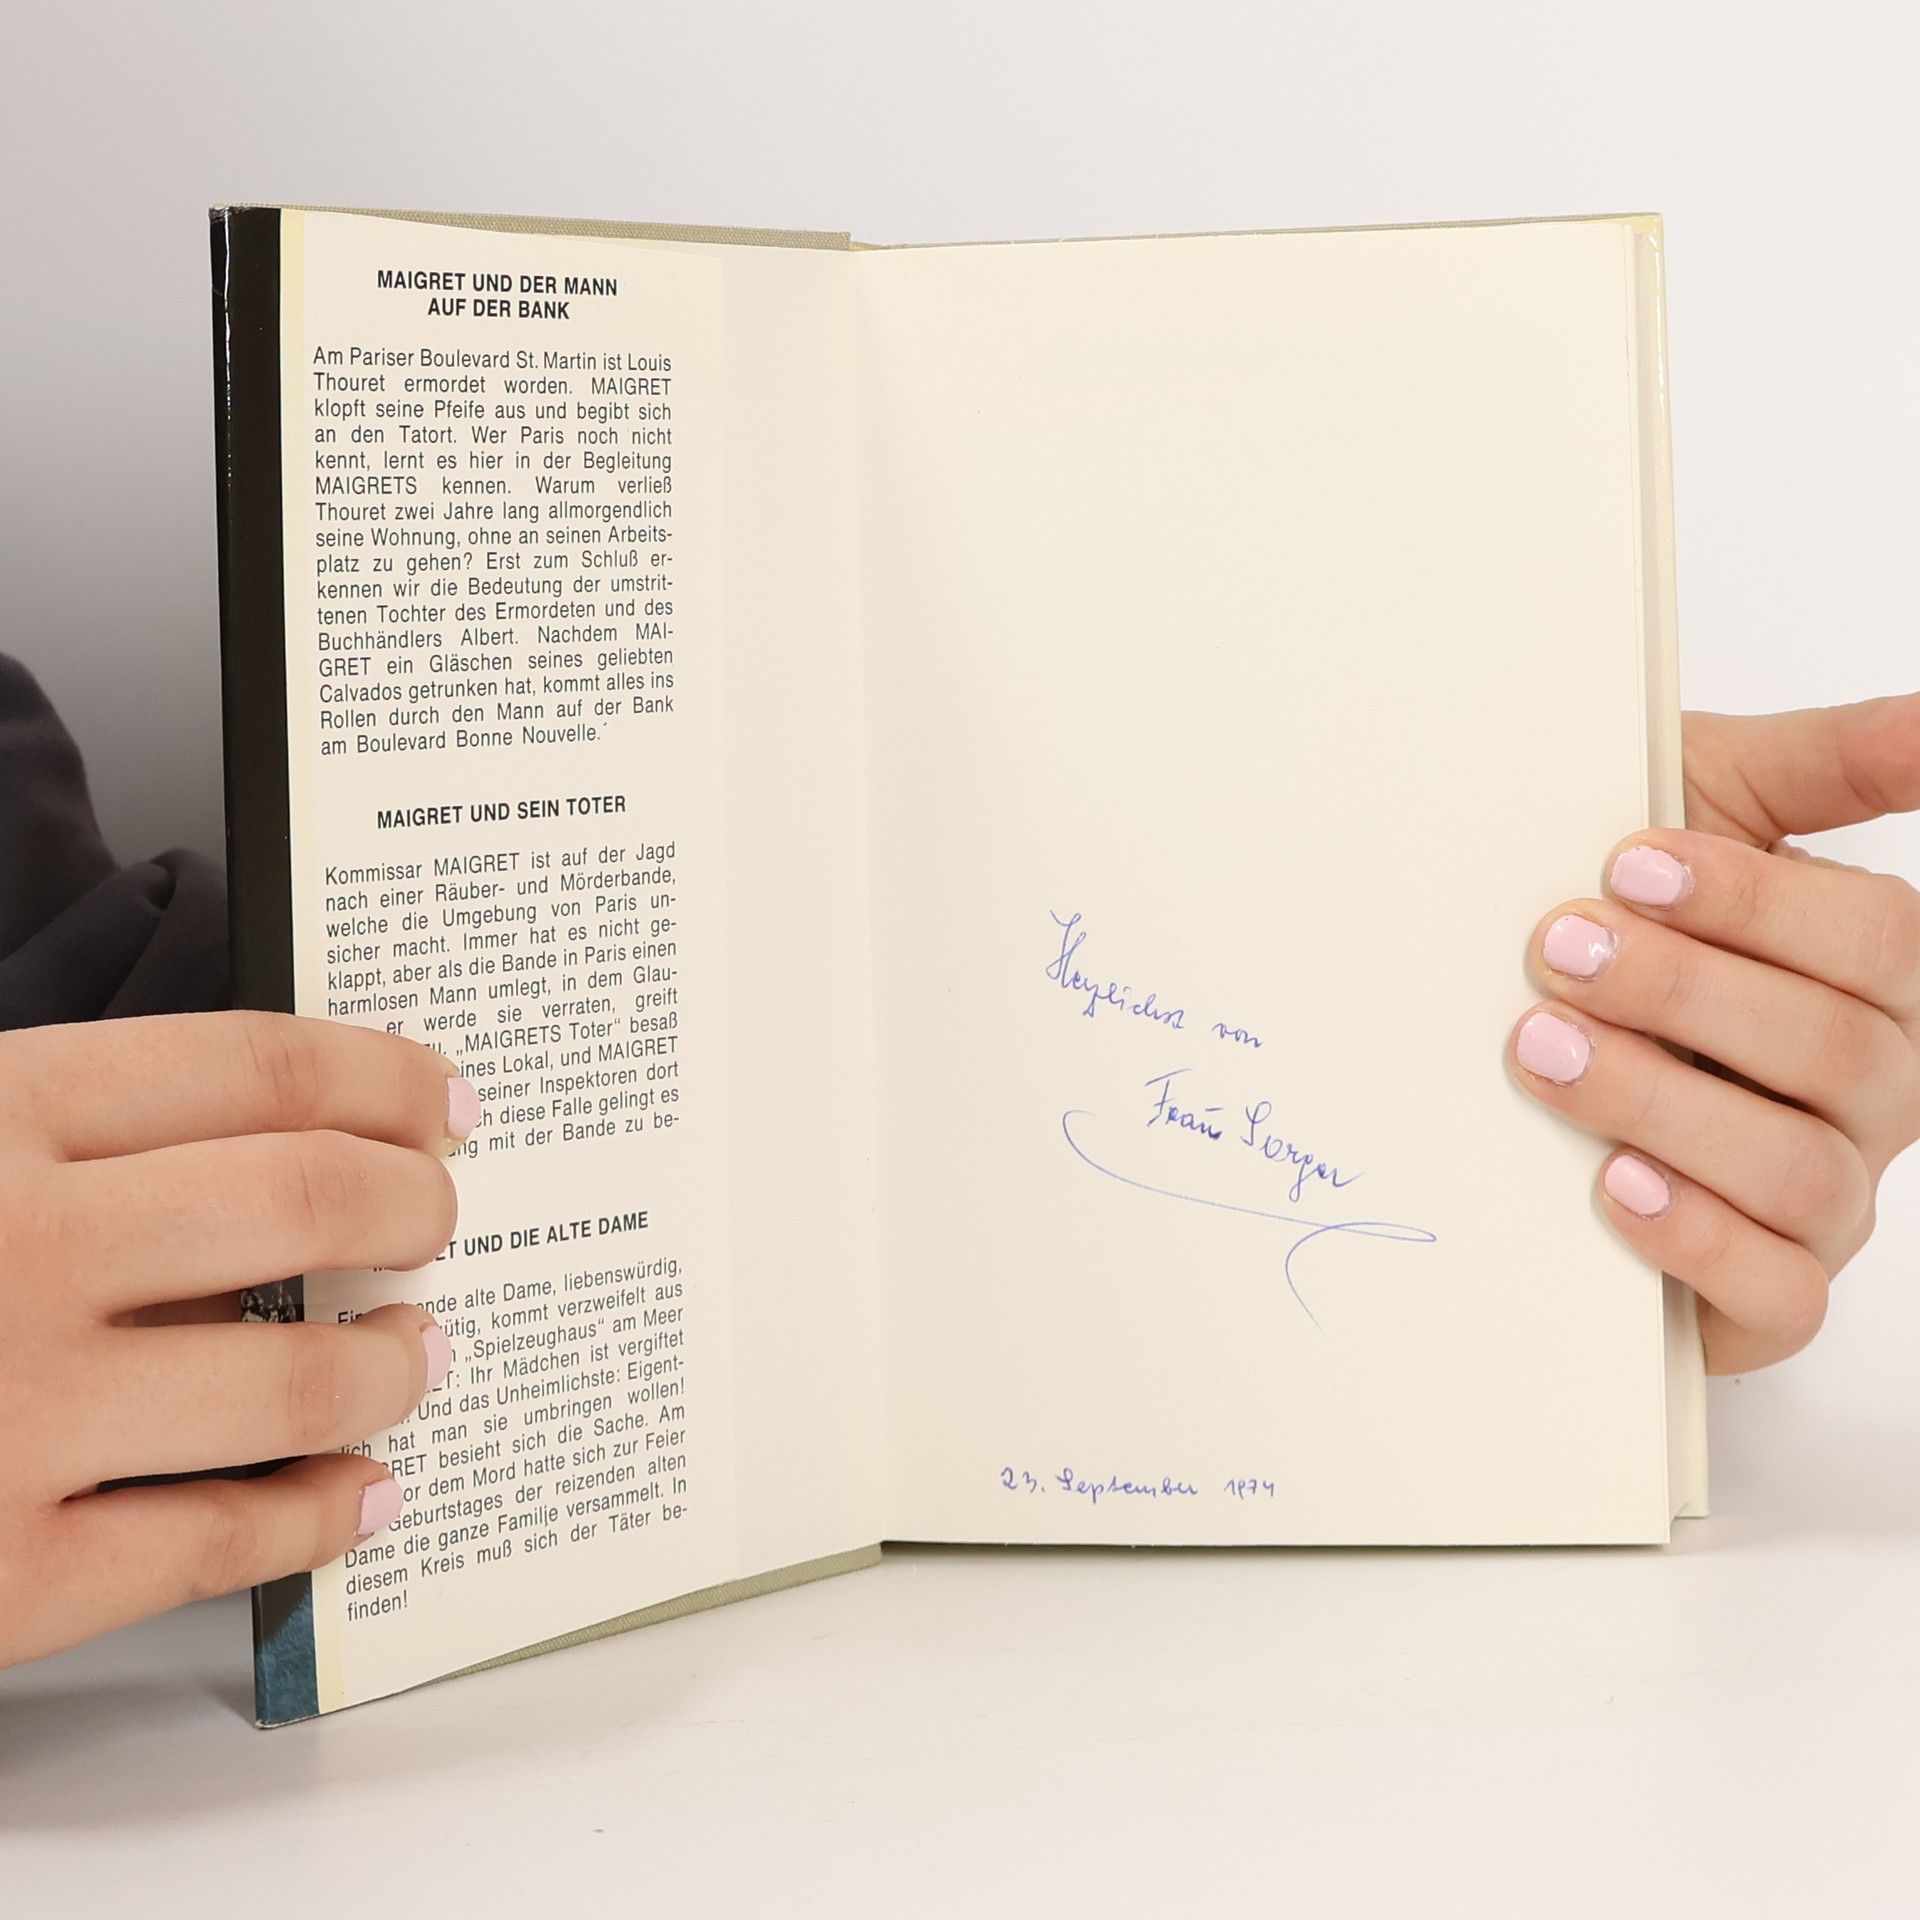 MAIGRET UND DER MANN
AUF DER BANK
Am Pariser Boulevard St. Martin ist Louis
Thouret ermordet worden. MAIGRET
klopft seine Pfeife aus und begibt sich
an den Tatort. Wer Paris noch nicht
kennt, lernt es hier in der Begleitung
MAIGRETS kennen. Warum verließ
Thouret zwei Jahre lang allmorgendlich
seine Wohnung, ohne an seinen Arbeits-
platz zu gehen? Erst zum Schluß er-
kennen wir die Bedeutung der umstrit-
tenen Tochter des Ermordeten und des
Buchhändlers Albert. Nachdem MAI-
GRET ein Gläschen seines geliebten
Calvados getrunken hat, kommt alles ins
Rollen durch den Mann auf der Bank
am Boulevard Bonne Nouvelle.
MAIGRET UND SEIN TOTER
Kommissar MAIGRET ist auf der Jagd
nach einer Räuber- und Mörderbande,
welche die Umgebung von Paris un-
sicher macht. Immer hat es nicht ge-
klappt, aber als die Bande in Paris einen
harmlosen Mann umlegt, in dem Glau-
er werde sie verraten, greift
zu. „MAIGRETS Toter“ besaß
Lokal, und MAIGRET
seiner Inspektoren dort
diese Falle gelingt es
mit der Bande zu be-
UND DIE ALTE DAME
alte Dame, liebenswürdig,
kommt verzweifelt aus
„Spielzeughaus“ am Meer
Ihr Mädchen ist vergiftet
Und das Unheimlichste: Eigent-
lich hat man sie umbringen wollen!
besieht sich die Sache. Am
dem Mord hatte sich zur Feier
Geburtstages der reizenden alten
Dame die ganze Familie versammelt. In
diesem Kreis muß sich der Täter be-
finden!
Herzlichst von
Frau Sorger
23. September 1974